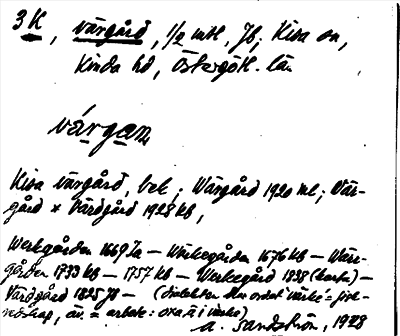 3 K, Värgård, 1/2 mtl, Jb; Kisa sn,
Kinda hd, Östergötl. län
várgan
Kisa värgård, bek; Wärgård 1920 ml; Vär-
gård x Värdgård 1928 kb,
Werkegården 1669 Ja – Wärkegården 1676 kb – Wärr-
gården 1733 kb – 1757 kb – Werkegård 1838 (karta) –
Värdgård 1825 Jb – (dialekten har ordet 'värke' =
redskap, äv. = arbete: oxa i värke)
A. Sandström, 1928